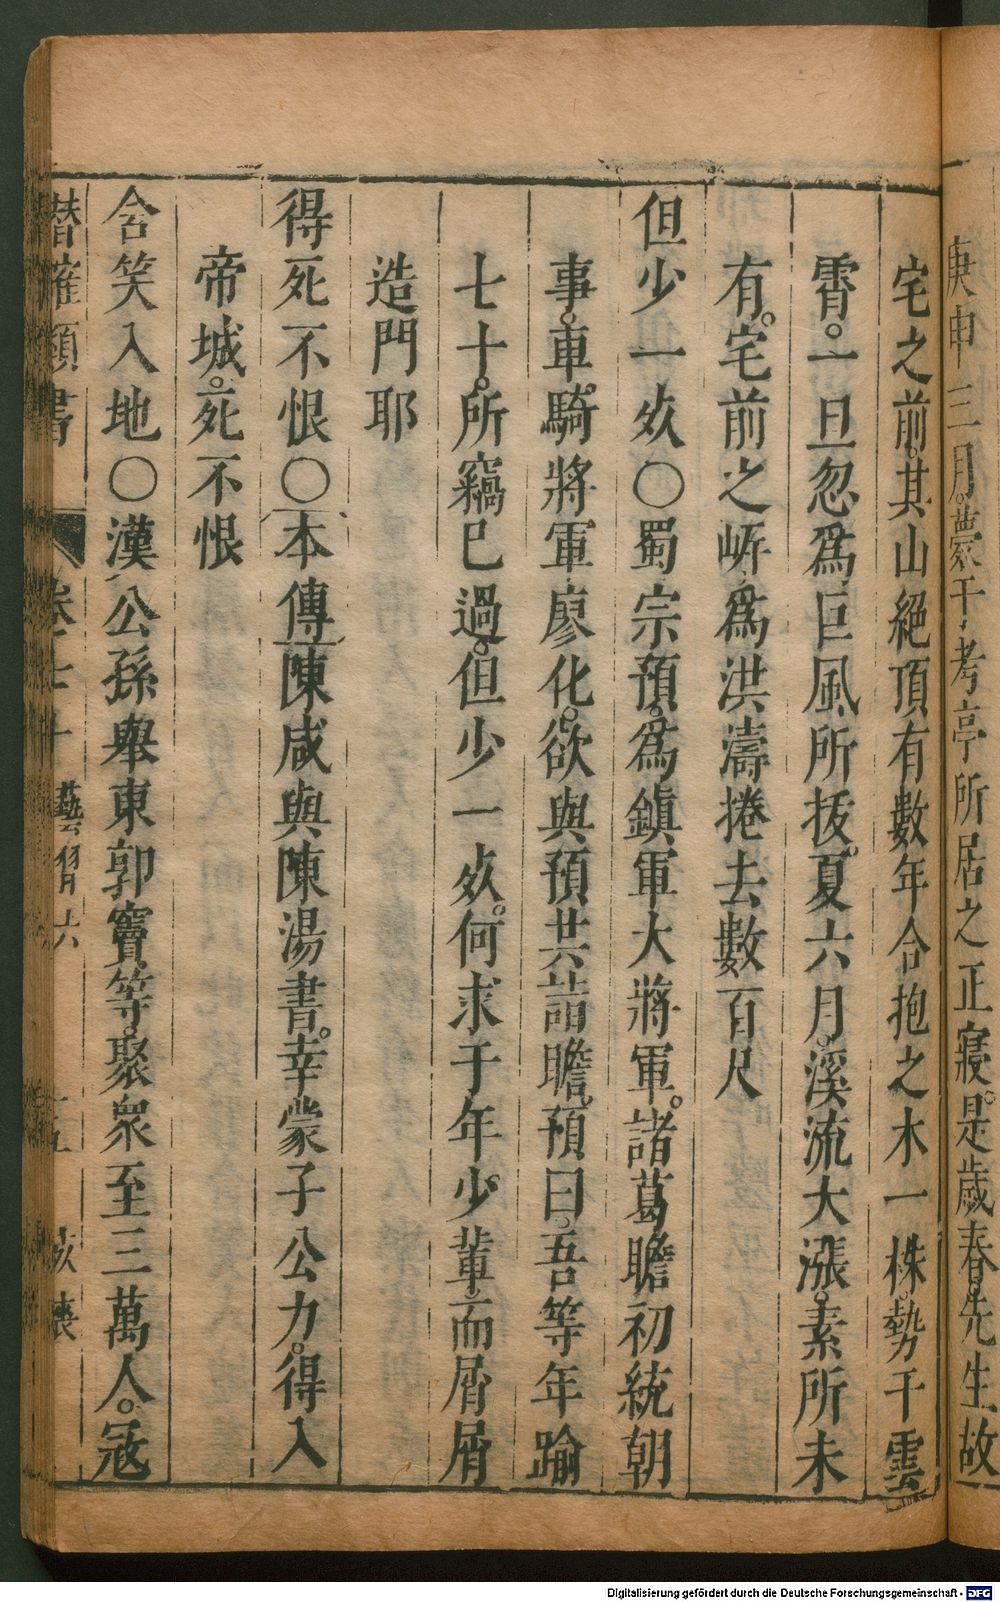 庚申三月。蒙于考亭所居之正寢。是歲春。先生故
宅之前。其山絕頂有數年合抱之木一株。勢干雲
霄。一旦忽爲巨風所拔。夏六月。溪流大漲。素所未
有。宅前之岓爲洪濤捲去數百尺
但少一㱠〇蜀宗預。爲鎮軍大將軍。諸葛瞻初統朝
事。車騎將軍廖化。欲與預共詣瞻。預曰。吾等年踰
七十。所竊已過。但少一㱠。何求于年少。輩而屑屑
造門耶
得死不恨〇本傳陳咸與陳湯書。幸蒙子公力。得入
帝城。死不恨
含笑入地〇漢公孫舉東郭竇等。聚衆至三萬人。寇
潛確類書 卷七十 藝習六 十五
Digitalisierung gefördert durch die Deutsche Forschungsgemeinschaft - DFG